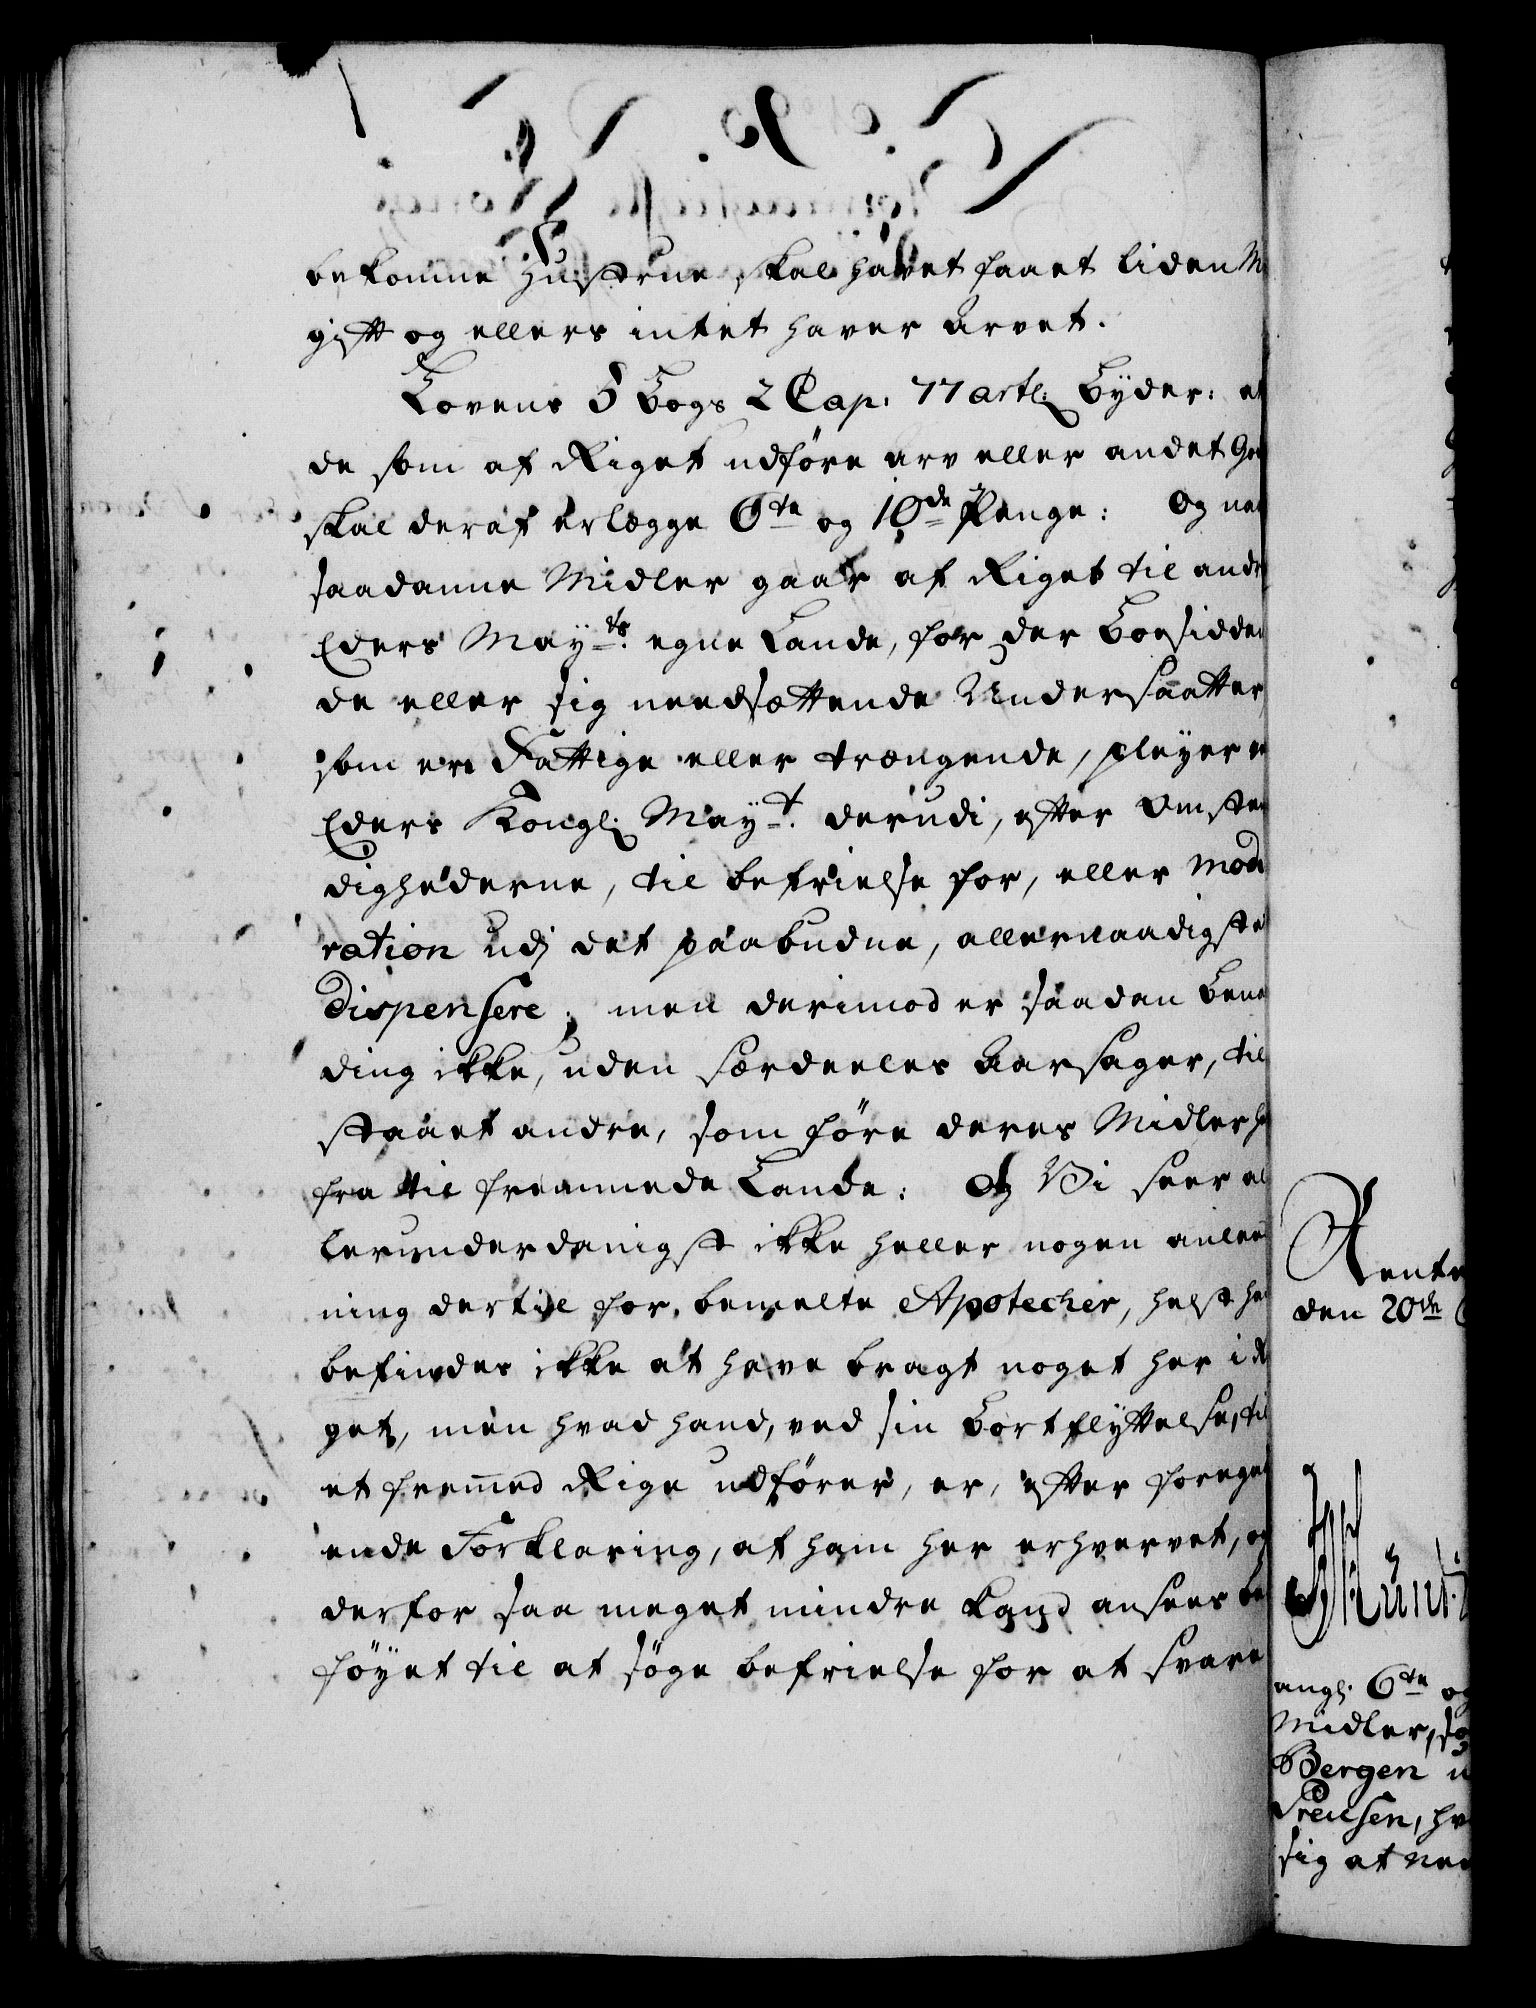 bekomne Hustrue skal havet faaet liden M
gift og ellers intet haver arvet.
Lovens 5 Bogs 2 Cap. 77 artl. Byder: at
de som af Riget udföre arv eller andet God
skal deraf erlægge 6te og 10de Penge: Og naar
saadanne Midler gaar af Riget til andre
Eders Mayts. egne Lande, for der Boesidden
de eller sig needsættende Undersaatter,
som ere Fattige eller trængende, pleyer
Eders Kongl. Mayt. derudi, efter Omsten
dighederne, til befrielse for, eller mode
ration udj det paabudne, allernaadigst
dispensere; men derimod er saadan Benaa
ding ikke, uden særdeeles Aarsager, til
staaet andre, som före deres Midler her
fra til fremmede Lande: Og Vi seer al
lerunderdanigst ikke heller nogen anlee
ning dertil for bemelte Apotecher, helst hand
befindes ikke at have bragt noget her i Ri
get, men hvad hand, ved sin Bortflyttelse, til
et fremed Rige udförer, er, efter foregi
ende Forklaring, af ham her erhvervet, og
derfor saa meget mindre kand ansees be
föyet til at söge befrielse for at svare
Rente
den 20de
angl. 6te og
Midler, so
Bergen u
Preusen, hv
sig at need